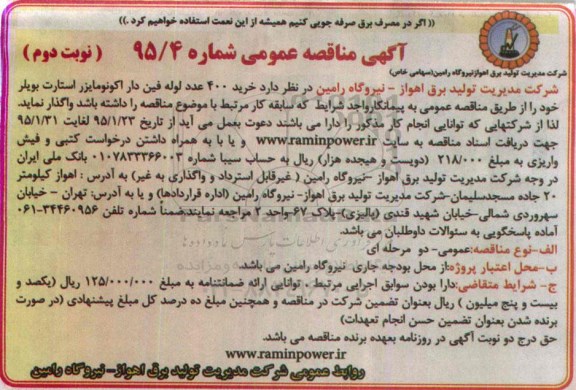 (( اگر در مصرف برق صرفه جویی کنیم همیشه از این نعمت استفاده خواهیم کرد .))
آگهی مناقصه عمومی شماره ۹۵/۴
( نوبت دوم )
شرکت مدیریت تولید برق اهواز(نیروگاه رامین(سهامی خاص)
شرکت مدیریت تولید برق اهواز – نیروگاه رامین در نظر دارد خرید ۴۰۰ عدد لوله فین دار اکونومایزر استارت بویلر
خود را از طریق مناقصه عمومی به پیمانکارواجد شرایط که سابقه کار مرتبط با موضوع مناقصه را داشته باشد واگذار نماید.
لذا از شرکتهایی که توانایی انجام کار مذکور را دارا می باشند دعوت بعمل می آید از تاریخ ۹۵/۱/۲۳ لغایت ۹۵/۱/۳۱
جهت دریافت اسناد مناقصه به سایت www.raminpower.ir و یا با به همراه داشتن درخواست کتبی و فیش
واریزی به مبلغ ۲۱۸/۰۰۰ (دویست و هیجده هزار) ریال به حساب سیبا شماره ۰۱۰۷۸۳۳۳۶۶۰۰۳ بانک ملی ایران
در وجه شرکت مدیریت تولید برق اهواز –نیروگاه رامین ( غیرقابل استرداد و واگذاری به غیر) به آدرس : اهواز کیلومتر
۲۰ جاده مسجدسلیمان-شرکت مدیریت تولید برق اهواز- نیروگاه رامین (اداره قراردادها) و یا به آدرس: تهران - خیابان
سهروردی شمالی-خیابان شهید قندی (پالیزی)-پلاک ۶۷-واحد ۲ مراجعه نمایند.ضمناً شماره تلفن ۳۴۴۶۰۹۵۶-۰۶۱
آماده پاسخگویی به سئوالات داوطلبان می باشد.
الف-نوع مناقصه:عمومی- دو مرحله ای
ب-محل اعتبار پروژه:از محل بودجه جاری نیروگاه رامین می باشد.
ج- شرایط متقاضی:دارا بودن سوابق اجرایی مرتبط ، توانایی ارائه ضمانتنامه به مبلغ ۱۲۵/۰۰۰/۰۰۰ ریال (یکصد و
بیست و پنج میلیون ) ریال بعنوان تضمین شرکت در مناقصه و همچنین مبلغ ده درصد کل مبلغ پیشنهادی (در صورت
برنده شدن بعنوان تضمین حسن انجام تعهدات)
حق درج دو نوبت آگهی در روزنامه بعهده برنده مناقصه می باشد.
www.raminpower.ir
روابط عمومی شرکت مدیریت تولید برق اهواز- نیروگاه رامین